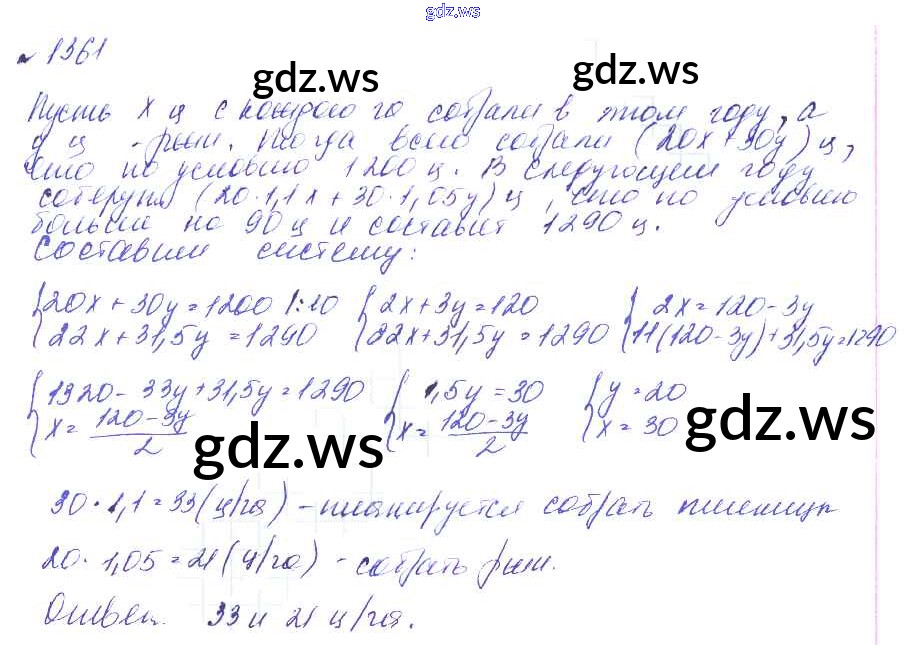 gdz.ws
№ 1361
gdz.ws gdz.ws
Пусть x ц с каждого га собрали в этом году, а
y ц - ржи. Тогда всего собрали (20x+30y) ц,
что по условию 1200 ц. В следующем году
соберут (20·1,1x+30·1,05y) ц, что по условию
больше на 90 ц и составит 1290 ц.
Составим систему:
{20x+30y=1200 |:10 {2x+3y=120 {2x=120-3y
22x+31,5y=1290 22x+31,5y=1290 11(120-3y)+31,5y=1290
{1320-33y+31,5y=1290 {1,5y=30 {y=20
x=(120-3y)/2 x=(120-3y)/2 x=30
gdz.ws gdz.ws gdz.ws
30·1,1=33(ц/га) - планируется собрать пшеницы
20·1,05=21(ц/га) - собрать ржи.
Ответ. 33 и 21 ц/га.